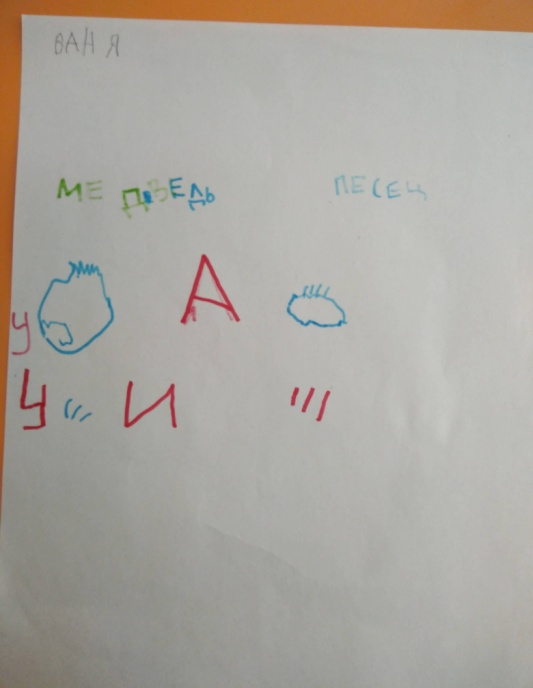 ВАНЯ
МЕДВЕДЬ ПЕСЕЦ
У А
У И